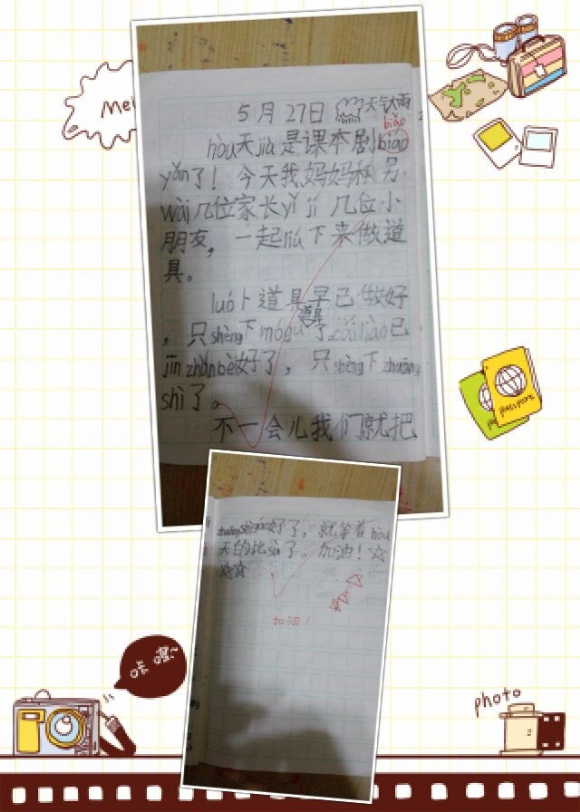 5月27日 天气大雨
biǎo
hòu天jiù是课本剧biǎo
yǎn了！今天我妈妈和另
wài几位家长yǐ jí几位小
朋友，一起liú下来做道
具。
luó卜道具早已做好
，只shèng下mógu了。cáiliào已
jīn zhǔnbèi好了，只shèng下zhuāng
shì了。
不一会儿我们就把
好了，就等着hòu
天的比sài了。加油！☆
☆☆
加油！
咔嚓~
passport
photo